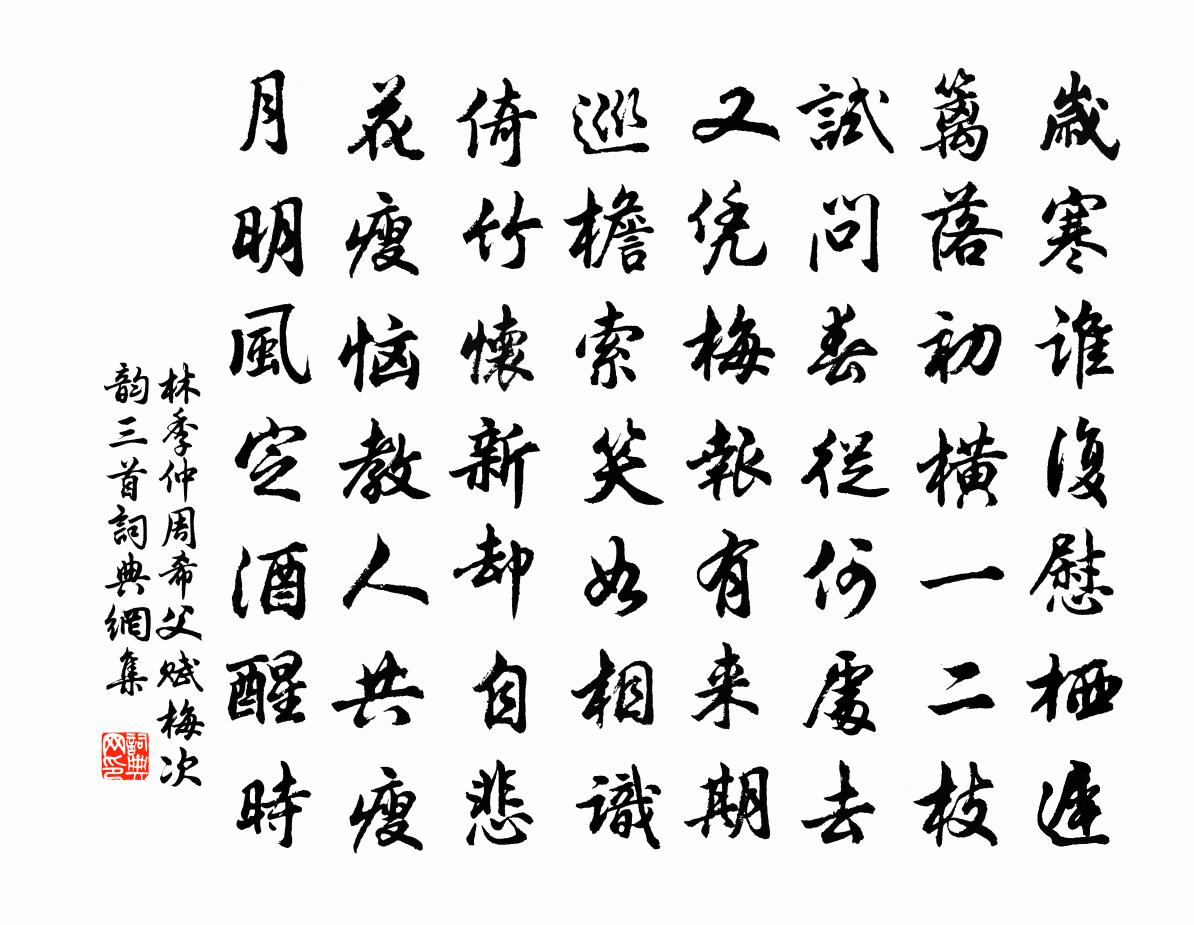 歲寒誰復慰栖遲
籬落初橫一二枝
試問春從何處去
又凭梅報有来期
巡檐索笑如相識
倚竹懷新却自悲
花瘦惱教人共瘦
月明風定酒醒時
林季仲周希父賦梅次
韵三首詞典網集
詞典
网印